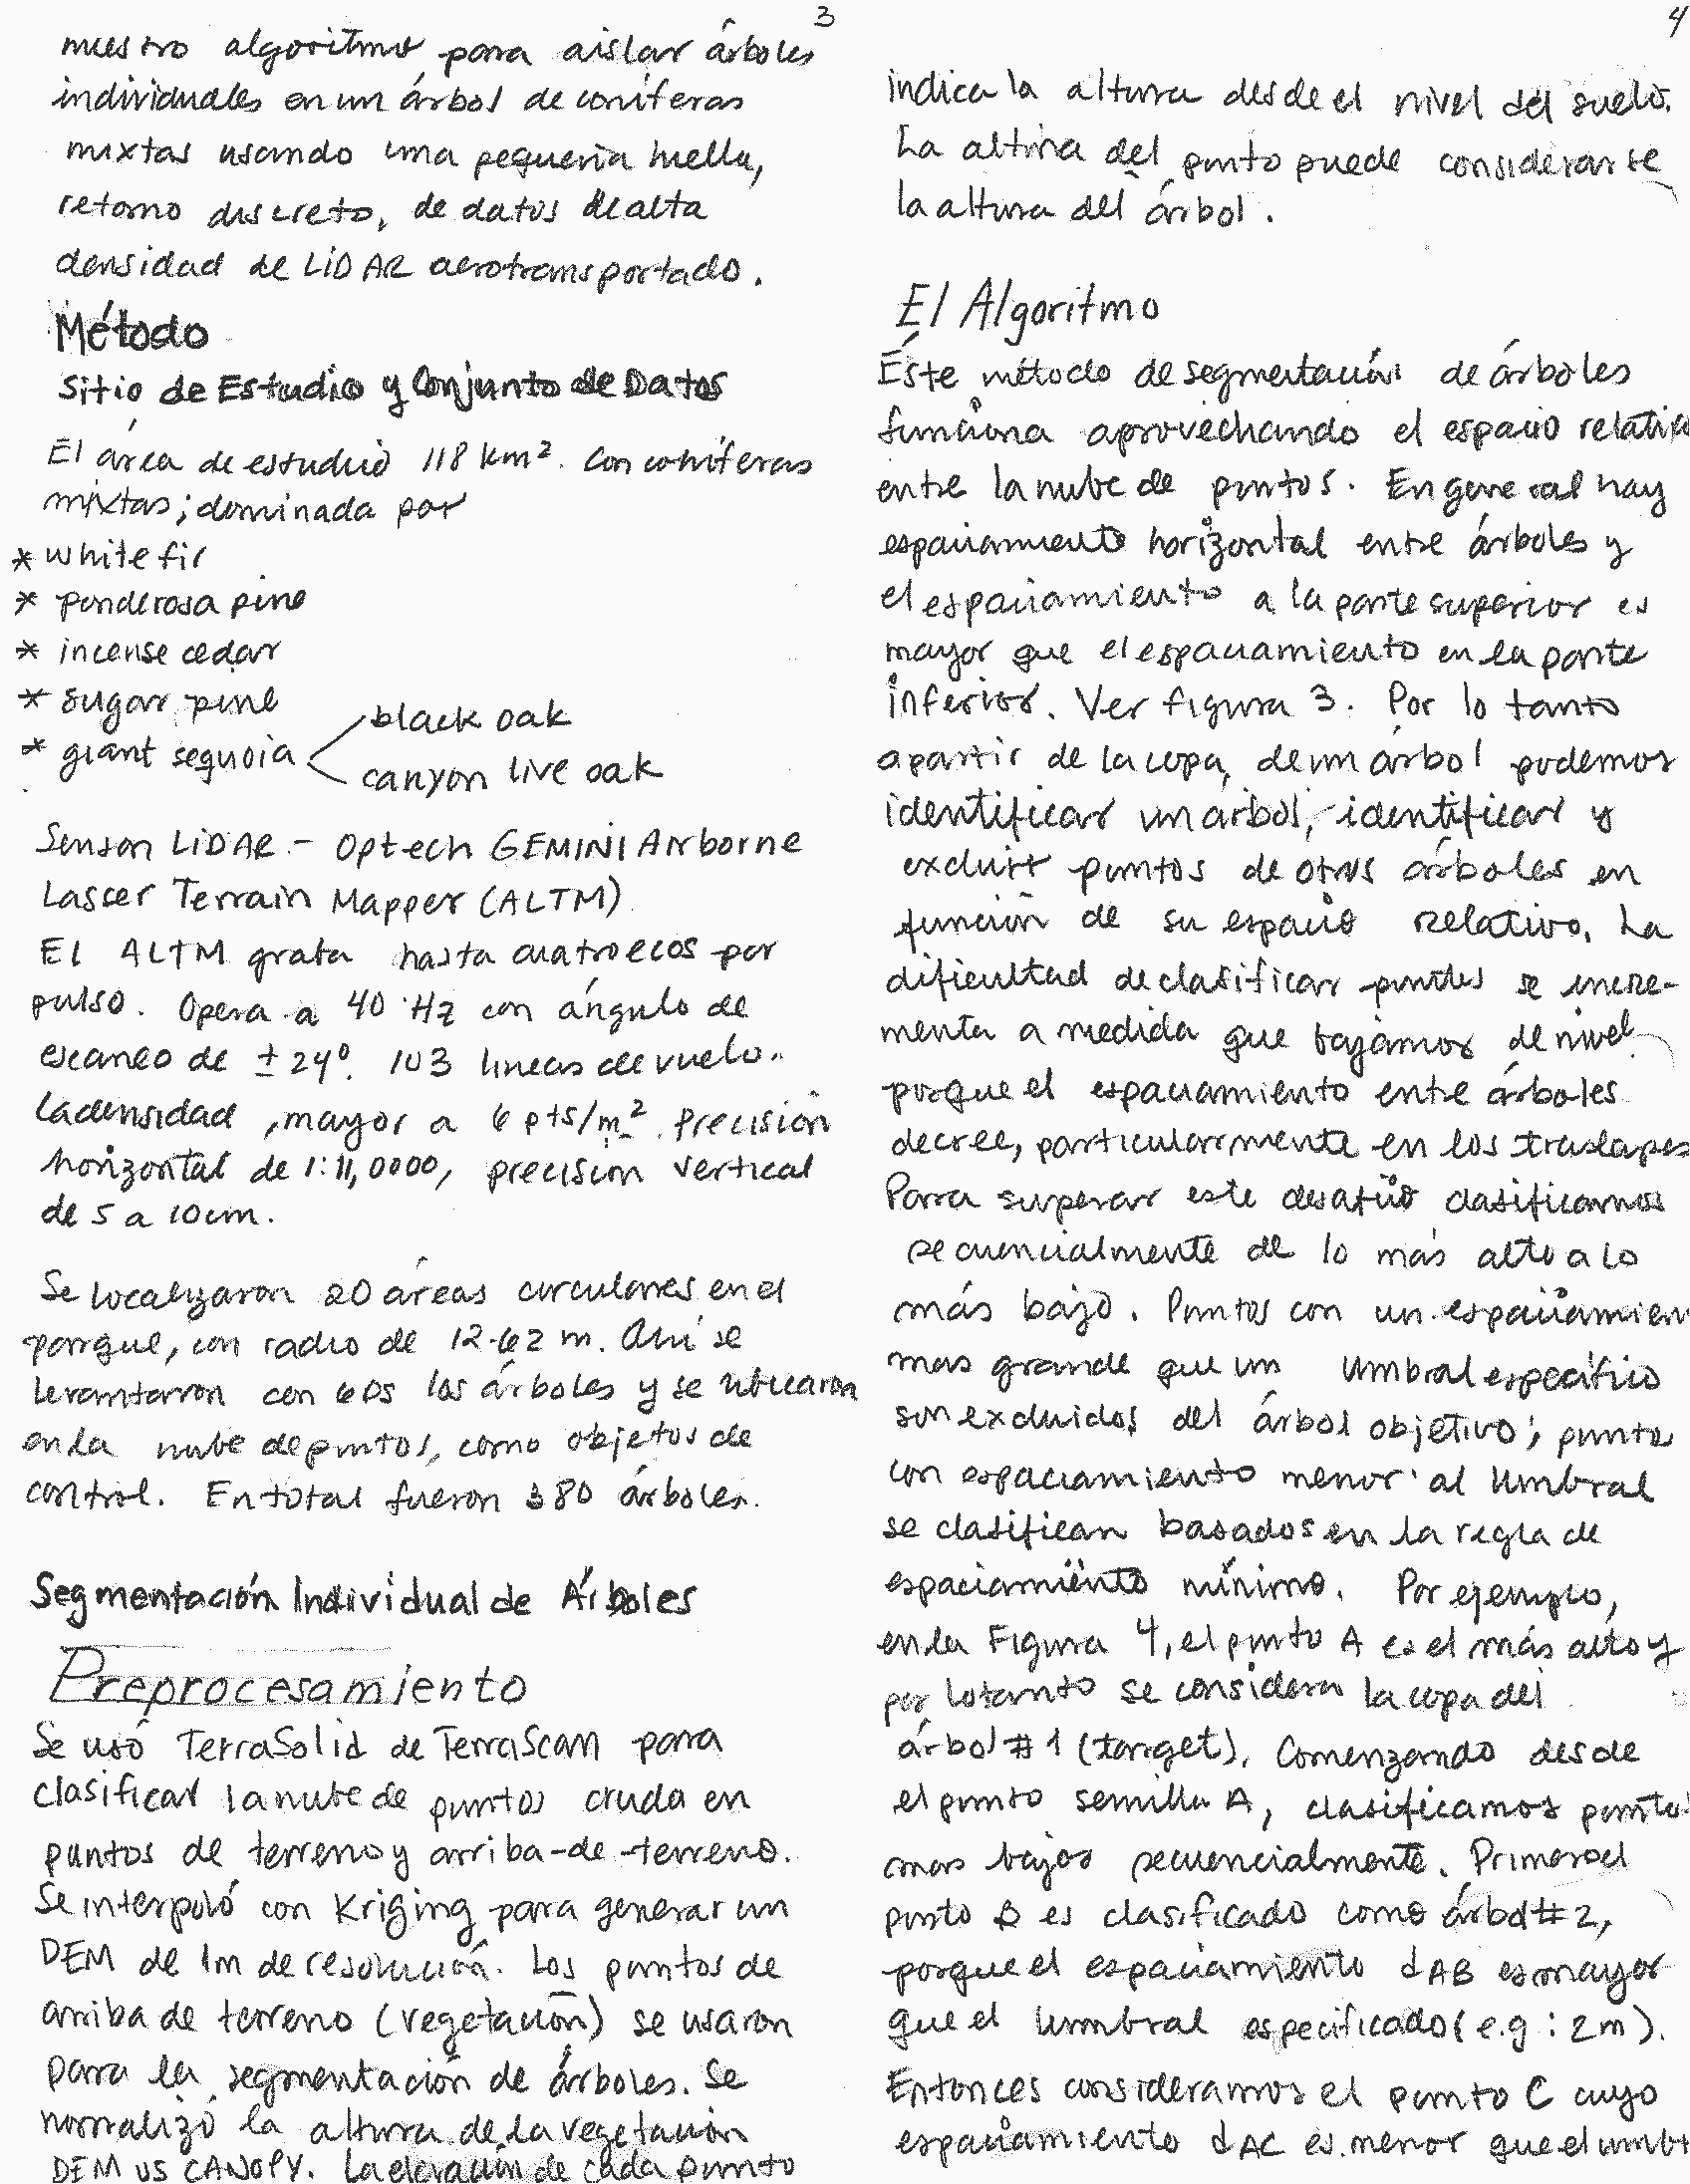 3
nuestro algoritmo para aislar árboles
individuales en un árbol de coníferas
mixtas usando una pequeña huella,
retorno discreto, de datos de alta
densidad de LiDAR aerotransportado.
Método
Sitio de Estudio y Conjunto de Datos
El área de estudio 118 km². Con coníferas
mixtas; dominada por
* white fir
* ponderosa pine
* incense cedar
* sugar pine
* giant sequoia
black oak
canyon live oak
Sensor LiDAR - Optech GEMINI Airborne
Lasser Terrain Mapper (ALTM)
El ALTM graba hasta cuatro ecos por
pulso. Opera a 40 Hz con ángulo de
escaneo de ± 24°. 103 lineas de vuelo.
La densidad, mayor a 6 pts/m². Precisión
horizontal de 1:11,0000, precisión vertical
de 5 a 10cm.
Se localizaron 20 áreas circulares en el
parque, con radio de 12.62 m. Ahí se
levantaron con los árboles y se ubicaron
en la nube de puntos, como objetos de
control. En total fueron 380 árboles.
Segmentación Individual de Árboles
Preprocesamiento
Se usó TerraSolid de TerraScan para
clasificar la nube de puntos cruda en
puntos de terreno y arriba-de-terreno.
Se interpoló con Kriging para generar un
DEM de 1m de resolución. Los puntos de
arriba de terreno (vegetación) se usaron
para la segmentación de árboles. Se
normalizó la altura de la vegetación
DEM vs CANOPY. La elevación de cada punto
4
indica la altura desde el nivel del suelo.
La altura del punto puede considerarse
la altura del árbol.
El Algoritmo
Éste método de segmentación de árboles
funciona aprovechando el espacio relativo
entre la nube de puntos. En general hay
espaciamiento horizontal entre árboles y
el espaciamiento a la parte superior es
mayor que el espaciamiento en la parte
inferior. Ver figura 3. Por lo tanto
a partir de la copa de un árbol podemos
identificar un árbol, identificar y
excluir puntos de otros árboles en
función de su espacio relativo. La
dificultad de clasificar puntos se incre-
menta a medida que bajamos de nivel
porque el espaciamiento entre árboles
decrece, particularmente en los traslapes
Para superar este desafío clasificamos
secuencialmente de lo más alto a lo
más bajo. Puntos con un espaciamien
mas grande que un umbral específico
son excluidos del árbol objetivo; punto
con espaciamiento menor al umbral
se clasifican basados en la regla de
espaciamiento mínimo. Por ejemplo,
en la Figura 4, el punto A es el más alto y
por lo tanto se considera la copa del
árbol #1 (target). Comenzando desde
el punto semilla A, clasificamos puntos
mas bajos secuencialmente. Primero el
punto B es clasificado como árbol #2,
porque el espaciamiento dAB es mayor
que el umbral especificado (e.g: 2m).
Entonces consideramos el punto C cuyo
espaciamiento dAC es menor que el umbr